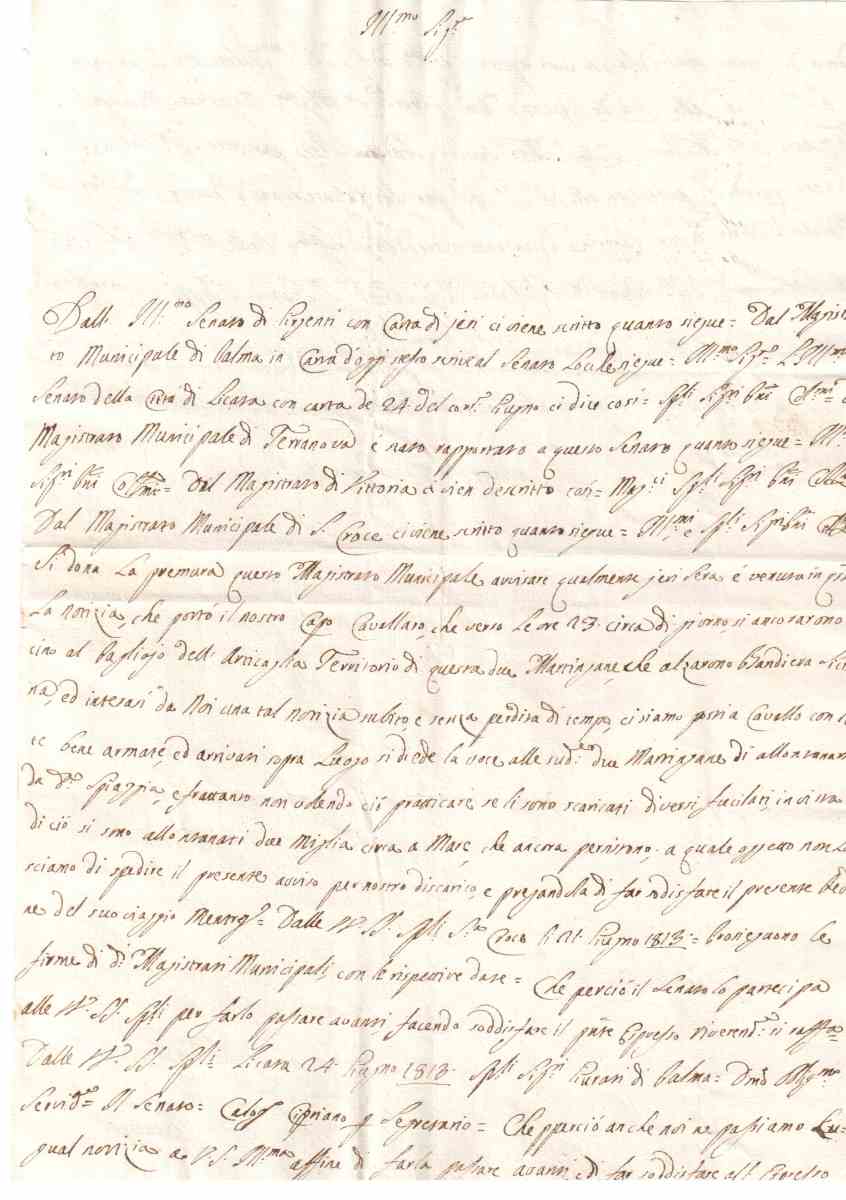 Ill.mo Sig.re
Dall' Ill.mo Senato di Girgenti con Carta di jeri ci viene scritto quanto siegue = Dal Magistra
to Municipale di Palma in Carta d'oggi stesso scrive al Senato Locale siegue = Ill.mo Sig.re L'Ill.mo
Senato della Città di Licata con carta de 24. del cor.e Giugno ci dice così = Sp.li Sig.ri
Magistrato Municipale di Terranova è stato rapportato a questo Senato quanto siegue = Ill.
Sig.ri = Dal Magistrato di Vittoria ci vien descritto così = Mag.ci Sp.li Sig.ri
Dal Magistrato Municipale di S. Croce ci viene scritto quanto siegue = Ill.mi e Sp.li Sig.ri
Si dona la premura questo Magistrato Municipale avvisare qualmente jeri sera è venuta in
La notizia, che portò il nostro Capo Cavallaro, che verso le ore 23. circa di giorno, si ancorarono
cino al Bagliojo dell' Territorio di questa due Martinjane, che alzarono Bandiera
na, ed intesasi da Noi una tal notizia subito, e senza perdita di tempo, ci siamo posti a Cavallo con
te bene armate, ed arrivati sopra Luogo si diede la voce alle sud.e due Martinjane di allontanarsi
da d.a Spiaggia, e frattanto non volendo ciò pratticare se li sono scaricati diversi fucilati, in vista
di ciò si sono allontanati due miglia circa a Mare, che ancora persistono, a quale oggetto non La
sciamo di spedire il presente avviso per nostro discarico, e pregandola di far sodisfare il presente
ne del suo viaggio Mentre = Dalle Sp.li S.ta Croce li 21. Giugno 1813 = le
firme di d.i Magistrati Municipali, con le rispettive date = Che perciò il Senato lo partecipa
alle Sp.li per farlo passare avanti, facendo soddisfare il p.nte Espresso
Dalle Sp.li Licata 24 Giugno 1813. Sp.li Sig.ri Giurati di Palma =
Servid.e Il Senato = Calog.o Cipriano Segretario = Che perciò anche noi ne passiamo Lu=
gual notizia a V.S. Ill.ma affine di farla passare avanti, ed far soddisfare all' Espresso